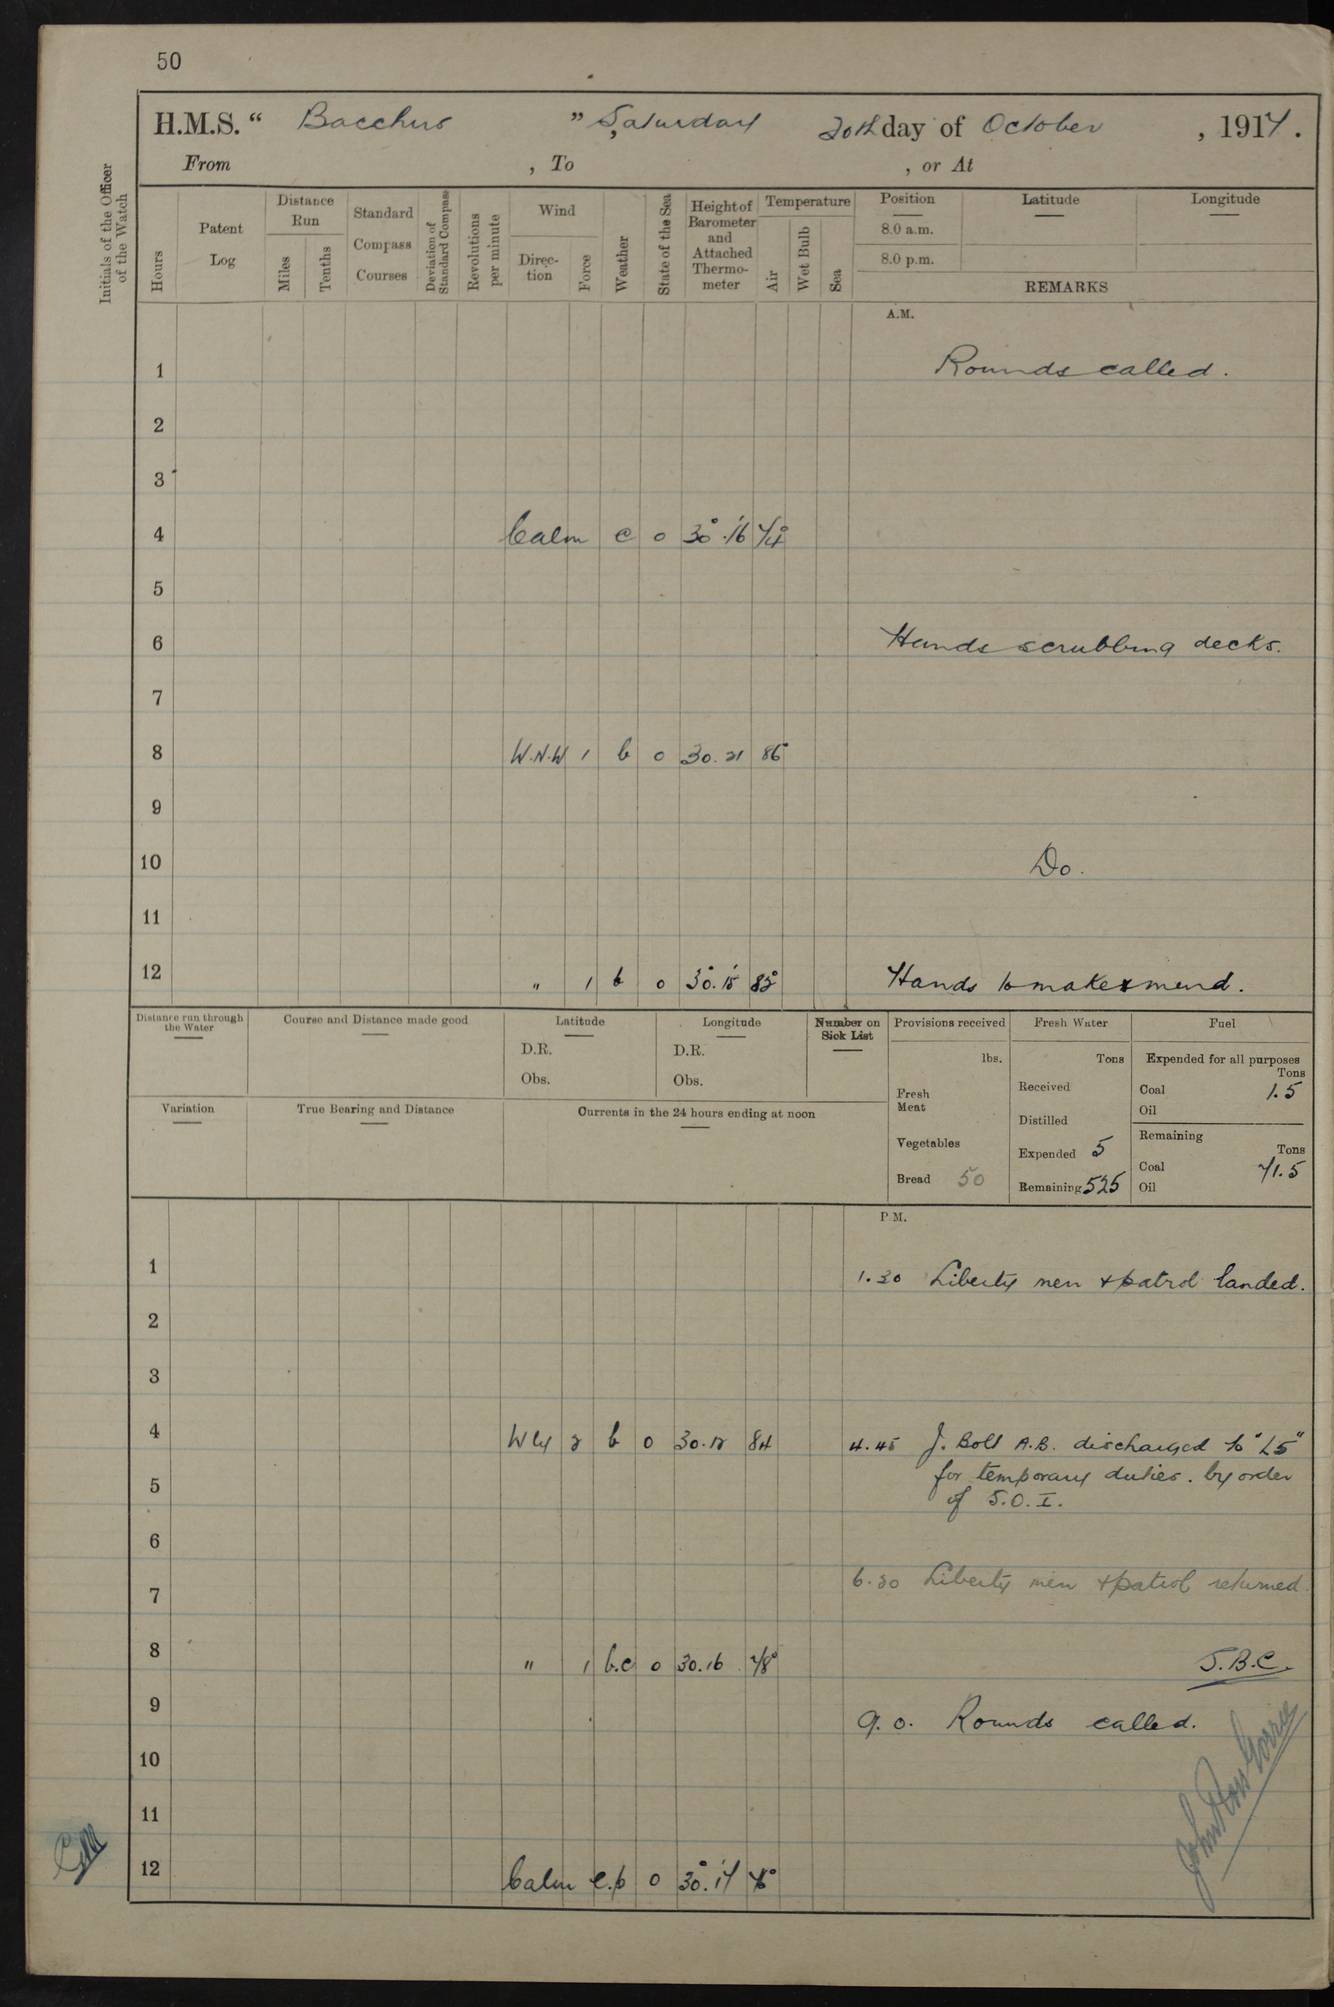 50
H.M.S. “ Bacchus ” , Saturday 20th day of October , 1917.
From , To , or At
Initials of the Officer of the Watch
Hours
Patent Log
Distance Run
Miles
Tenths
Standard Compass Courses
Deviation of Standard Compass
Revolutions per minute
Wind
Direc-tion
Force
Weather
State of the Sea
Height of Barometer and Attached Thermo-meter
Temperature
Air
Wet Bulb
Sea
Position Latitude Longitude
8.0 a.m.
8.0 p.m.
REMARKS
A.M.
1 Rounds called.
2
3
4 Calm c 0 30°.16 74°
5
6 Hands scrubbing decks.
7
8 W.N.W 1 b 0 30.21 86°
9
10 Do.
11
12 " 1 b 0 30°.15 82° Hands to make & mend.
Distance run through the Water
Course and Distance made good
Latitude
D.R.
Obs.
Longitude
D.R.
Obs.
Number on Sick List
Provisions received
lbs.
Fresh Meat
Vegetables
Bread 50
Fresh Water
Tons
Received
Distilled
Expended 5
Remaining 525
Fuel
Expended for all purposes
Tons
Coal 1.5
Oil
Remaining
Tons
Coal 71.5
Oil
Variation
True Bearing and Distance
Currents in the 24 hours ending at noon
P.M.
1 1.30 Liberty men & patrol landed.
2
3
4 Wly 2 b 0 30.12 84 4.45 J. Boll A.B. discharged to "L5"
for temporary duties. by order
5 of S.O.I.
6
6.30 Liberty men & patrol returned.
7
8 " 1 b.c 0 30.16 78° J.B.C.
9 9.0. Rounds called.
10
11
12 Calm c.p 0 30°.17 76°